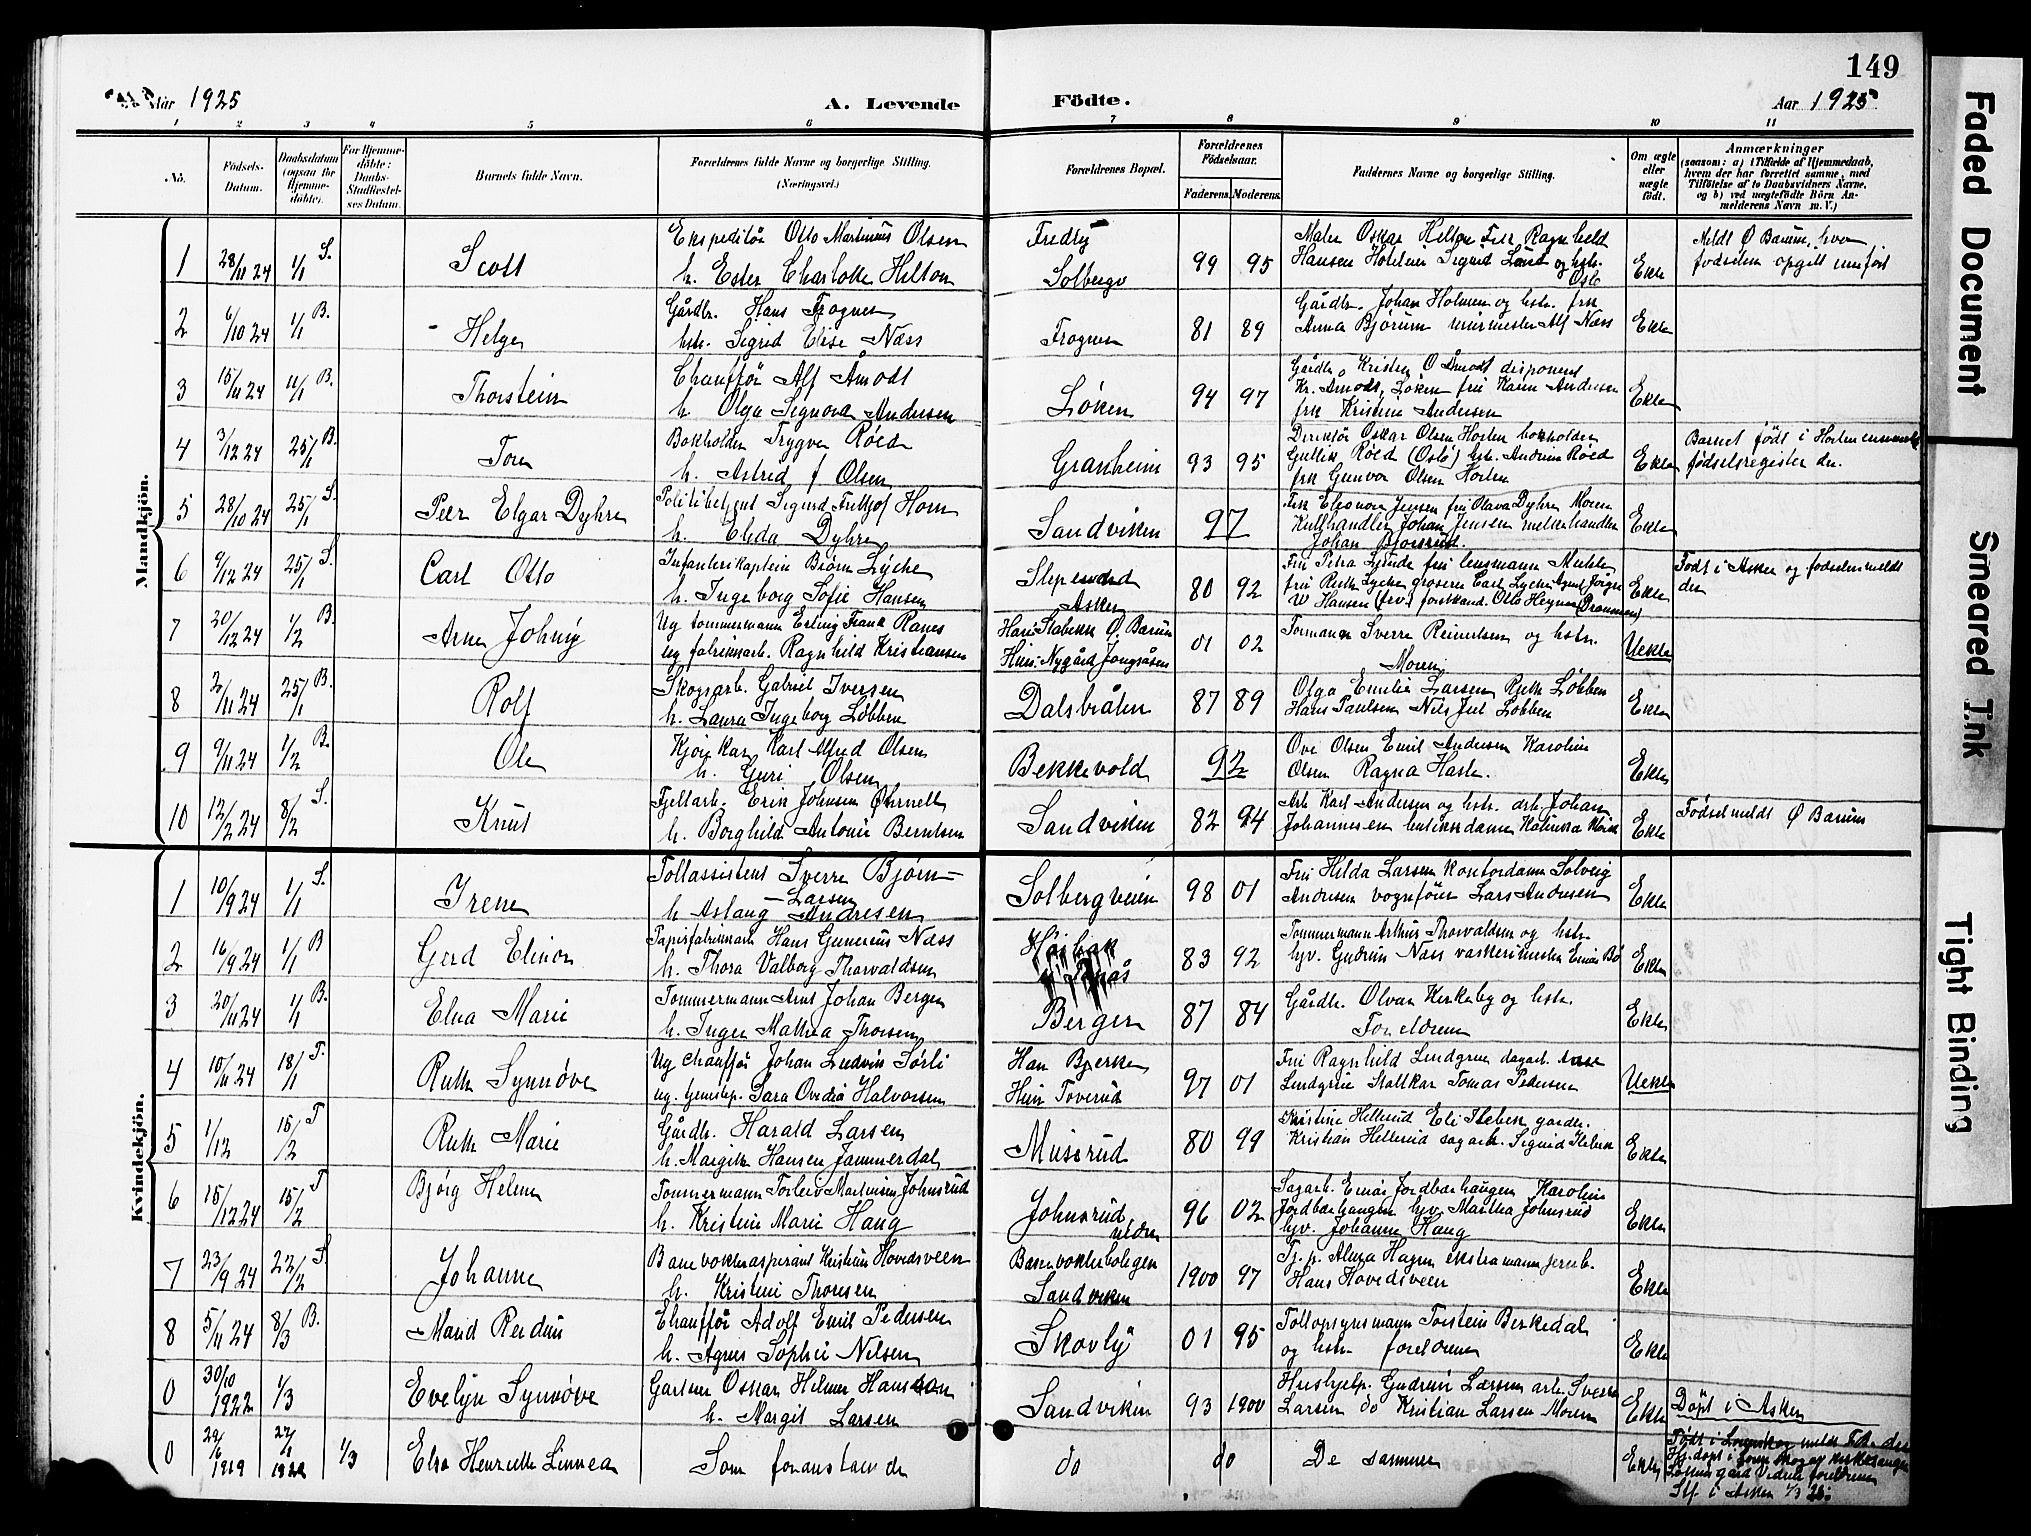 149
Aar 1925
A. Levende
Födte.
Aar 1925
1 2 3 4 5 6 7 8 9 10 11
No.
Födsels-Datum.
Daabsdatum (ogsaa for Hjemmedöbte).
For Hjemmedöbte: Daabs-Stadfæstelses Datum.
Barnets fulde Navn.
Forældrenes fulde Navne og borgerlige Stilling. (Næringsvei.)
Forældrenes Bopæl.
Forældrenes Födselsaar.
Faderens. Moderens.
Faddernes Navne og borgerlige Stilling.
Om ægte eller uægte födt.
Anmærkninger
(saasom: a) i Tilfælde af Hjemmedaab, hvem der har forrettet samme, med Tilföielse af to Daabsvidners Navne, og b) ved uægtefödte Börn Anmelderens Navn m. V.)
Mandkjön.
1 28/11 24 1/1 S. Scott Ekspeditör Otto Martinius Olsen
h. Ester Charlotte Hilton
Fredly Solberg 99 95
Maler Oskar Hilton Frk Ragnhild
Hansen Sigrid Lund og hstr. Oslo
Ekte
Meldt Ø Bærum, hvor fødselen opgitt
2 6/10 24 1/1 B. Helge Gårdbr. Hans Frogner
hstr. Sigrid Elise Næss
Frogner 81 89
Gårdbr. Johan Holmen og hstr. frk
Anna Bjørum murmester Alf Næss
Ekte
3 15/11 24 11/1 B. Thorstein Chauffør Alf Åmodt
h. Olga Signora Andersen
Løken 94 97
Gårdbr Kristen O Åmodt disponent
Kr. Åmodt, Løken fru Karen Andersen
frk Kristine Andersen
Ekte
4 3/12 24 25/1 B. Tore Bokholder Trygve Røed
h. Astrid f Olsen
Granheim 93 95
Direktør Oskar Olsen Horten bokholder
Gullik Røed (Oslo) hst. Andrea Røed
frk Gunvor Olsen Horten
Ekte
Barnet født i Horten
fødselsregister der.
5 28/10 24 25/1 S. Peer Elgar Dyhre Politibetjent Sigurd Fritjof Horn
h. Elida Dyhre
Sandviken 97
Frk Eleonora Jensen fru Olava Dyhre Moren
Kullhandler Johan Jensen melkehandler
Johan Bjorsrud.
Ekte
6 9/12 24 25/1 S. Carl Otto Infanterikaptein Bjørn Lyche
h. Ingeborg Sofie Hansen
Slependen Asker 80 92
Fru Petra fru lensmann
fru Ruth Lyche grosserer Carl Lyche
W Hansen Otto (Drammen)
Ekte
Født i Asker og fødselen meldt
der
7 20/12 24 1/2 B. Arne Johnny Ug tømmermann Erling Frank Ranes
ug fabrikkarb. Ragnhild Kristiansen
Han: Stabekk Ø. Bærum
Hun: Nygård Jongsåsen 01 02
Formann Sverre Reinertsen og hstr.
Moren
Uekte
8 2/11 24 25/1 B. Rolf Skogsarb. Gabriel Iversen
h. Laura Ingeborg Løbben
Dalsbråten 87 89
Olga Emilie Larsen Ruth Løbben
Hans Paulsen Nils Juel Løbben
Ekte
9 9/11 24 1/2 B. Ole Kjørekar Karl Alfred Olsen
h. Guri Olsen
Bekkevold 92
Ove Olsen Emil Andersen Karoline
Olsen Ragna Hasle.
Ekte
10 12/2 24 8/2 S. Knut Fjellarb. Erik Johnsen
h. Borghild Antonie Berntsen
Sandviken 82 94
Arb Karl Andersen og hstr. arb. Johan
Johannesen butikkdame
Ekte
Fødsel meldt Ø Bærum
Kvindekjön.
1 10/9 24 1/1 S. Irene Tollassistent Sverre Bjørn-
-Larsen
h Aslaug Andresen
Solbergveien 98 01
Fru Hilda Larsen kontordame Solveig
Andresen vognfører Lars Andresen
Ekte
2 16/9 24 1/1 B Gerd Elinor Papirfabrikkarb Hans Gunerius Næss
h. Thora Valborg Thorvaldsen
83 92
Tømmermann Arthur Thorvaldsen og hstr.
hjv. Gudrun Næss vaskerimester Einar Bø
Ekte
3 20/11 24 1/1 B. Elna Marie Tømmermann Arnt Johan Bergen
h. Inger Mathea Thorsen
Bergen 87 84
Gårdbr. Olvar Kirkeby og hstr.
Foreldrene
Ekte
4 10/11 24 18/1 T. Ruth Synnøve Ug chauffør Johan Ludvin Sørli
ug. tjenestep. Sara Ovedia Halvorsen
Han Bjerke
Hun Toverud 97 01
Fru Ragnhild Lindgren dagarb.
Lindgren Stallkar Tomas Pedersen
Uekte
5 1/12 15/2 T Ruth Marie Gårdbr. Harald Larsen
h. Margith Hansen Jammerdal
Musrud 80 99
Kristine Hellerud Eli Stebekk gårdbr.
Kristian Hellerud sagarb. Sigurd Stebekk
Ekte
6 15/12 24 15/2 T Bjørg Helene Tømmermann Torleiv Martinsen Johnsrud
h. Kristine Marie Haug
Johnsrud nedre 96 02
Sagarb. Einar Jordbærhaugen Karoline
Jordbærhaugen hjv. Martha Johnsrud
hjv. Johanne Haug
Ekte
7 23/9 24 22/2 S. Johanne Banevokteraspirant Kristian Hovedsveen
h. Kristine Thorsen
Banevokterboligen Sandviken 1900 97
Tj.p. Alma Hagen ekstramann jernb.
Hans Hovedsveen
Ekte
8 5/11 24 8/3 B. Maud Reidun Chauffør Adolf Emil Pedersen
h. Agnes Sophie Nilsen
Skovly 01 95
Tollopsynsmann Torstein Birkedal
og hstr foreldrene
Ekte
0 30/10 1922 1/3 Evelyn Synnøve Gartner Oskar Helmer Hansson
h. Margit Larsen
Sandviken 93 1900
Hushjelp. Gudrun Larsen arb. Sverre
Larsen do Kristian Larsen Moren
Ekte
Døpt i Asker
0 29/6 1919 1/3 Elsa Henriette Linnea Som foranstående
do do De samme
Ekte
Født i
Hj.døpt i
foreldrene
Stf. i Asker 1/3 25.
Faded Document
Smeared Ink
Tight Binding